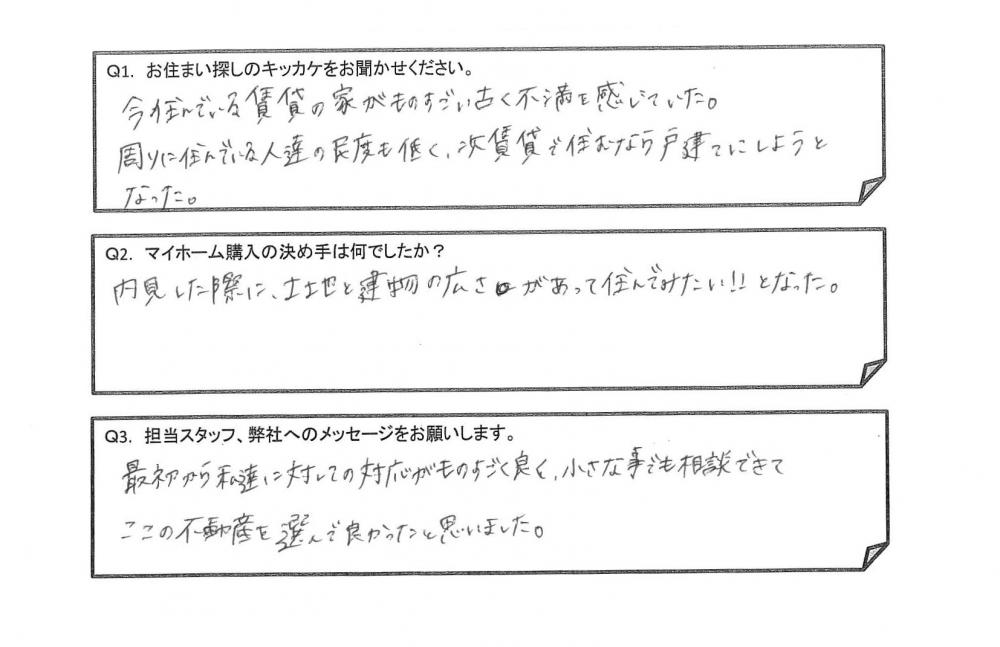 Q1. お住まい探しのキッカケをお聞かせください。
今住んでいる賃貸の家がものすごい古く不満を感じていた。
周りに住んでいる人達の民度も低く、次賃貸で住むなら戸建てにしようと
なった。
Q2. マイホーム購入の決め手は何でしたか？
内見した際に、土地と建物の広さがあって住んでみたい!!となった。
Q3. 担当スタッフ、弊社へのメッセージをお願いします。
最初から私達に対しての対応がものすごく良く、小さな事でも相談できて
ここの不動産を選んで良かったと思いました。